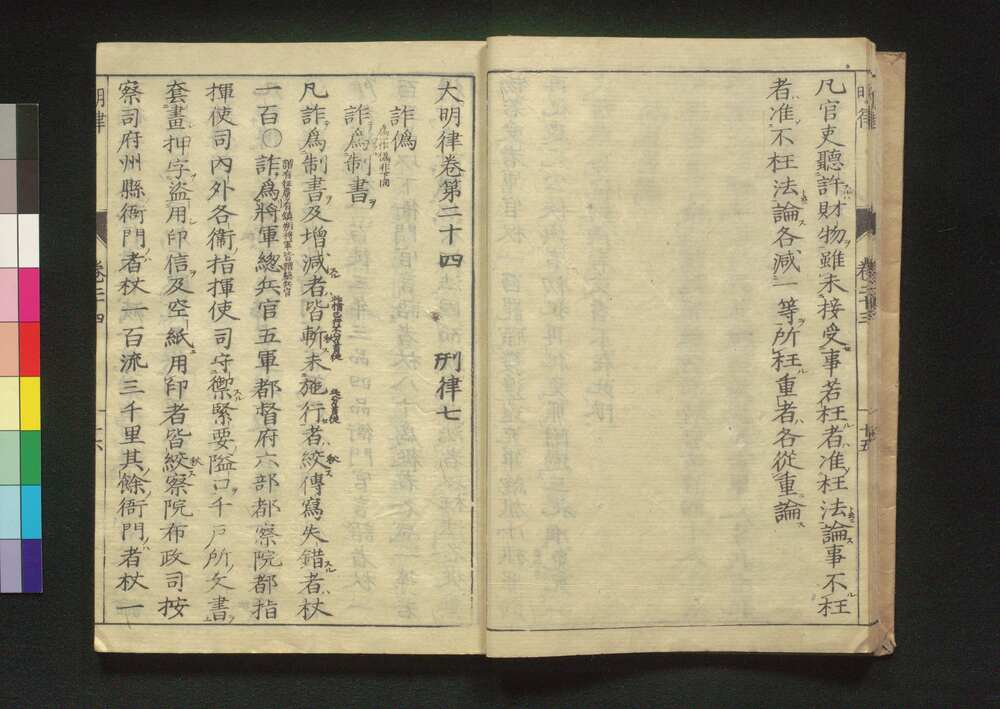 凡官吏聽許財物雖未接受事若枉者准枉法論事不枉
者准不枉法論各減一等所枉重者各從重論
明律
卷二十三
十五
大明律卷第二十四 刑律七
詐僞
詐爲制書
凡詐爲制書及增減者皆斬未施行者絞傳寫失錯者杖
一百〇詐爲將軍總兵官五軍都督府六部都察院都指
揮使司內外各衞指揮使司守禦緊要隘口千戶所文書
套畫押字盜用印信及空紙用印者皆絞察院布政司按
察司府州縣衙門者杖一百流三千里其餘衙門者杖一
明律
卷二十四
十六